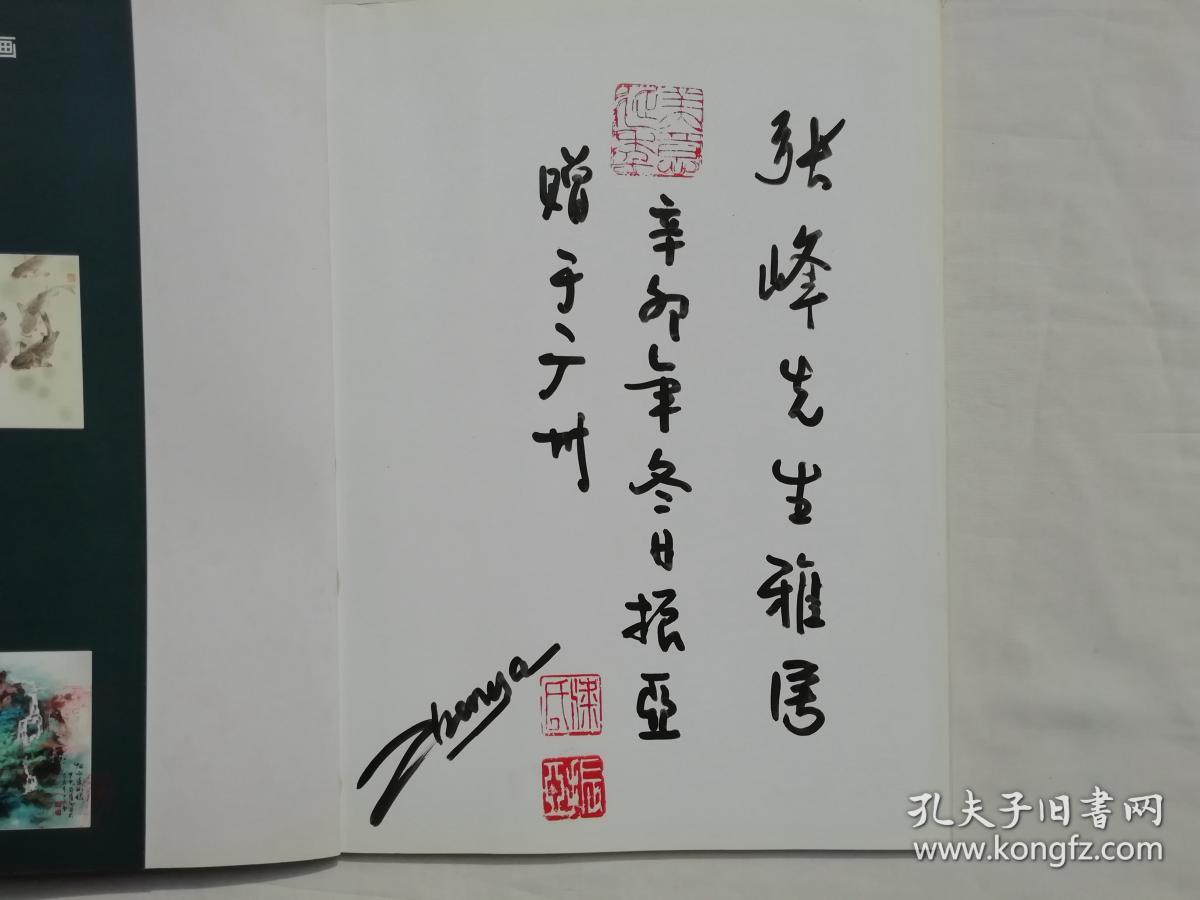 画
张峰先生雅属
美意延年
辛卯年冬日振亞
赠于广州
Zhenya
振亞
孔夫子旧书网
www.kongfz.com